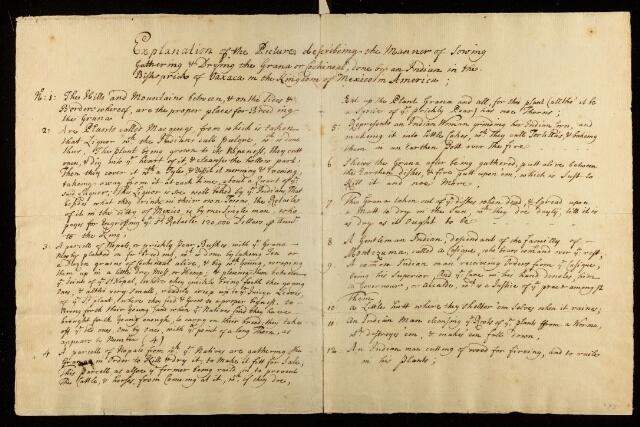 Explanation of the Picture describeing the Manner of Sowing
Gathering & Drying the Grana or Cochineal, done by an Indian in the
Bishoprick of Oaxaca in the Kingdom of Mexico in America;
N: 1: The Hills and Mountains between, & on the Sides &
Borders whereof, are the proper places for Breeding
the Grana
2: Are Plants called Magueys, from which is taken
that Liquor wch the Indians call Pulque, is done
thus. This plant being grown to its Ripeness, they cutt
open, & dig into ye heart of it, & cleanse the hollow part.
Then they cover it wth a & morning & Evening,
takeing away from it at each time, about a Quart of ye
said Liquor. This Liquor is soe well liked by ye Indians, that
besides what they drink in their own Towns, the Retaile
of it in the Citty of Mexico is by one Single man, who
pays for ye Retaile 120,000 Dollars
to the King.
3. A parcell of Nopals, or prickly Pear Bushes with ye Grana
Newly placed in for Breeding, wch is done by takeing Ten or
a Dozen grains of Cochineal alive, & big with young, wraping
them up in a little dry Moss or Hemp, & placeing them between
ye Joint of ye Nopal, where they quickly bring forth their young
ones, & after very small, readily creep unto ye Juicy Leaves
of ye Plant, where they feed & grow to a proper bigness, to
bring forth their young; and when ye Natives find they have
brought forth young enough, to carry on their breed, they take
off ye old ones, one by one, with ye point of a long Thorn, as
appears in Number (4)
4. A parcell of Nopals from wch ye Natives are gathering the
Grana in Order to Kill & dry it, to make it fitt for Sale,
this Parcell as alsoe ye former being rail'd in, to prevent
the Cattle, & horses, from comeing at it, wch if they doe,
Eat up the Plant Grana and all, for this plant (altho' it be
a Species of ye prickly Pear) has noe Thorns;
5. Represents an Indian Woman grinding her Indian Corn, and
makeing it into little Cakes, wch They call Tortillas, & bakeing
them in an Earthen Pott over the fire
6 Shews the Grana after being gathered, putt alive between
two Earthen dishes, & fire putt upon 'em, which is Just to
Kill it and noe More,
7 The Grana taken out of ye dishes when dead, & Spread upon
a Matt to dry in the Sun, wch they doe dayly, till it is
as dry as it ought to be.
8 A Gentleman Indian, descendant of the familly of
Montezuma, called a Casique, who bears comand over ye rest,
9 a Indian man receiving Orders from ye Casique,
being his Superior. And ye Cane in his hand denotes him
a Governour, or Alcalde, wch is a Justice of ye peace amongst
Them.
10 a Little hutt where they shelter 'em Selves when it raines,
11 An Indian Man cleansing ye Roots of ye plants from a Worme,
wch destroyes em, & makes em fall down,
12. An Indian man cutting of wood for fireing, and to raile
in his plants;